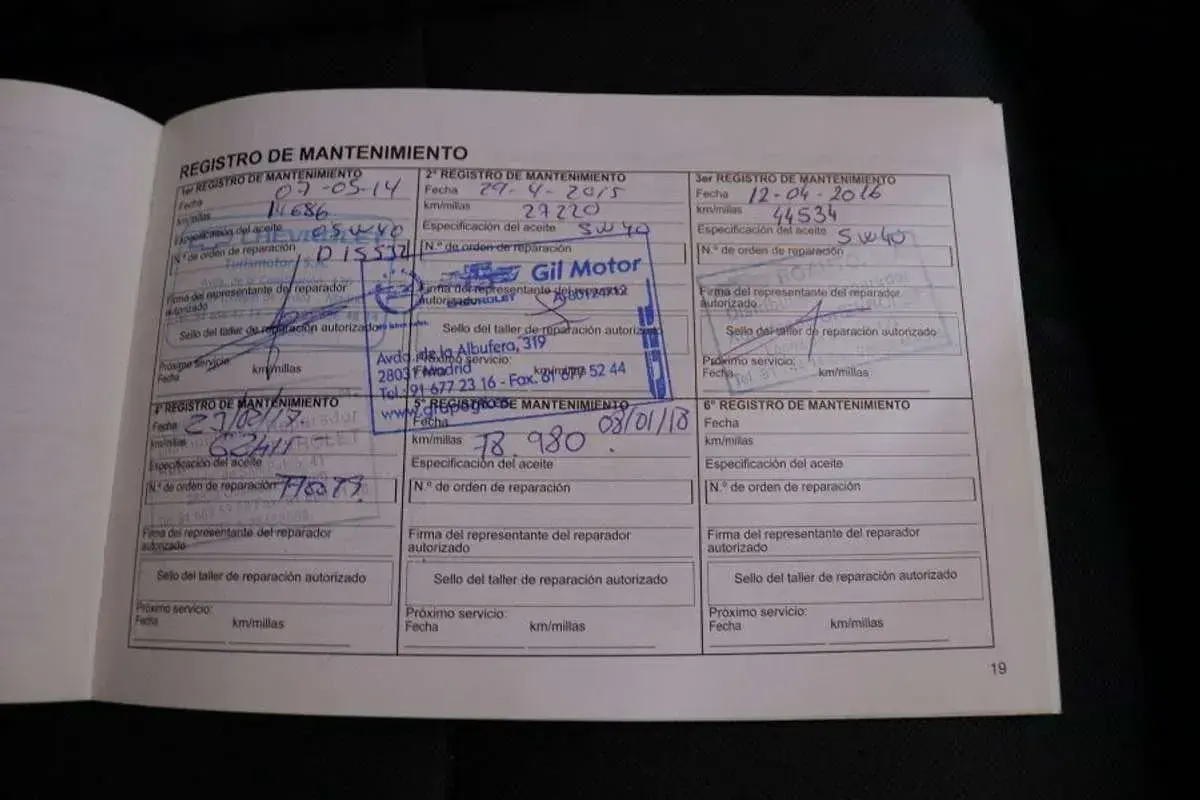 REGISTRO DE MANTENIMIENTO
1er REGISTRO DE MANTENIMIENTO
Fecha 07-05-14
km/millas 11686
Especificación del aceite 05W40
CHEVROLET
N.º de orden de reparación D15532
Turismotor, S.A.
Firma del representante del reparador
autorizado
Sello del taller de reparación autorizado
Próximo servicio:
Fecha km/millas
2º REGISTRO DE MANTENIMIENTO
Fecha 29-4-2015
km/millas 27220
Especificación del aceite 5W40
N.º de orden de reparación
Gil Motor
Firma del representante del reparador
autorizado
CHEVROLET
Sello del taller de reparación autorizado
Avda. de la Albufera, 319
Próximo servicio:
Fecha km/millas
28031 Madrid
Tel.: 91 677 23 16 - Fax. 91 677 52 44
3er REGISTRO DE MANTENIMIENTO
Fecha 12-04-2016
km/millas 44534
Especificación del aceite 5W40
N.º de orden de reparación
Firma del representante del reparador
autorizado
Sello del taller de reparación autorizado
Próximo servicio:
Fecha km/millas
4º REGISTRO DE MANTENIMIENTO
Fecha
km/millas
Especificación del aceite
N.º de orden de reparación
Firma del representante del reparador
autorizado
Sello del taller de reparación autorizado
Próximo servicio:
Fecha km/millas
5º REGISTRO DE MANTENIMIENTO
Fecha 08/01/18
km/millas 78.980.
Especificación del aceite
N.º de orden de reparación
Firma del representante del reparador
autorizado
Sello del taller de reparación autorizado
Próximo servicio:
Fecha km/millas
6º REGISTRO DE MANTENIMIENTO
Fecha
km/millas
Especificación del aceite
N.º de orden de reparación
Firma del representante del reparador
autorizado
Sello del taller de reparación autorizado
Próximo servicio:
Fecha km/millas
19